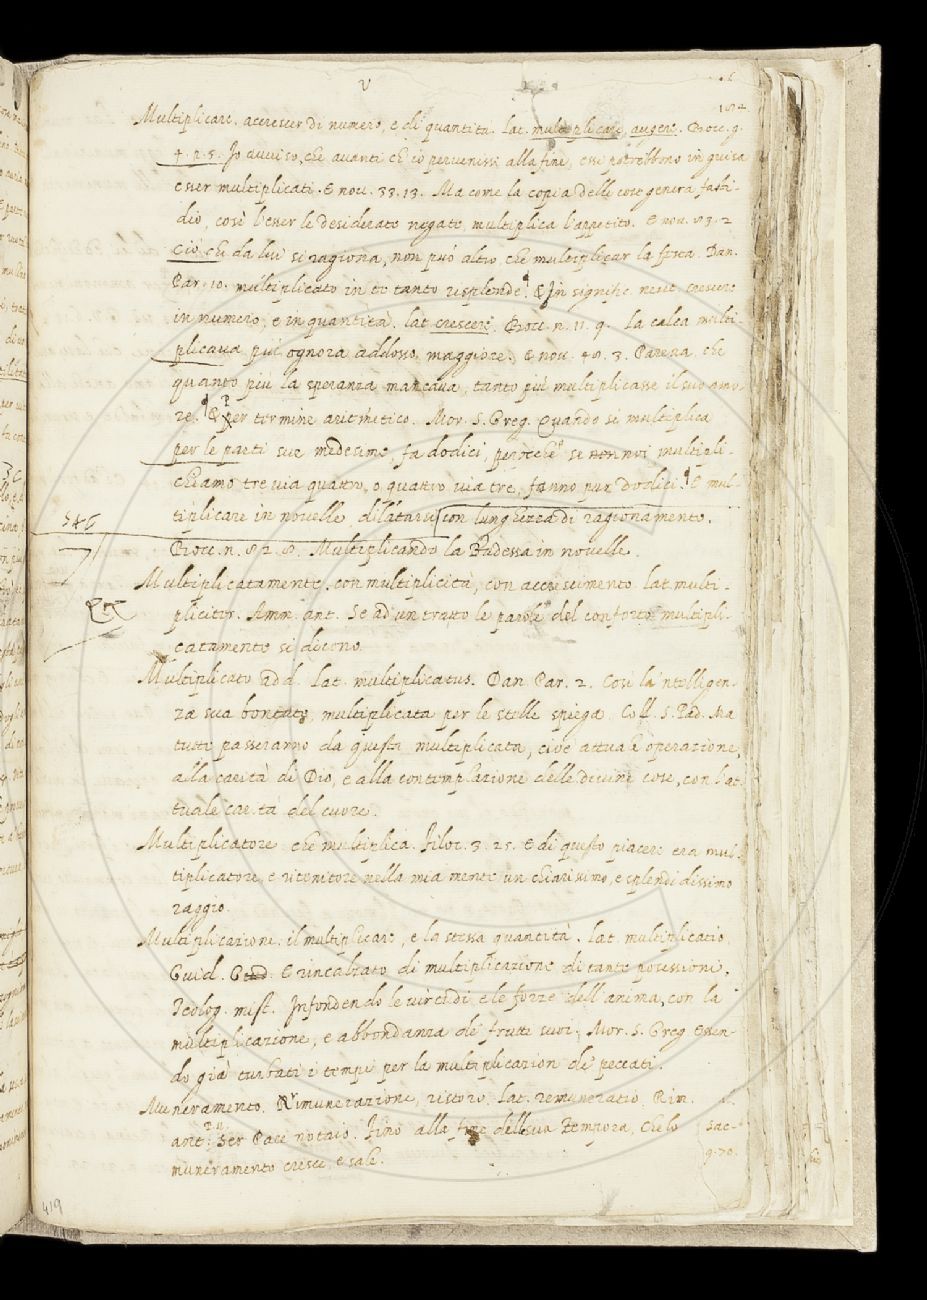 V
182
Multiplicare. accrescer di numero, e di quantità. lat. multiplicare, augere. Bocc. g.
4. p. 5. Io avviso, che avanti ch' io pervenissi alla fine, esse potrebbono in guisa
esser multiplicati. E nov. 33. 13. Ma come la copia delle cose genera fasti-
dio, così l'esser le desiderate negate, multiplica l'appetito. E nov. 83. 2
Ciò che da lui si ragiona, non può altro, che multiplicar la festa. Dan.
Par. 10. multiplicato in te tanto risplende. E In signific. neut. crescere
in numero, e in quantità. lat. crescere. Bocc. n. 11. 9. La calca multi-
plicava più ognora addosso, maggiore. E nov. 40. 3. Pareva che
quanto più la speranza mancava, tanto più multiplicasse il suo amo-
re. E Per termine aritmetico. Mor. S. Greg. Quando si multiplica
per le parti sue medesime, fa dodici, perocchè se noi multipli-
chiamo tre via quattro, o quattro via tre, fanno pur dodici. E mul-
tiplicare in novelle dilatarsi con lunghezza di ragionamento.
546
Bocc. n. 82. 8. Multiplicando la Badessa in novelle.
Multiplicatamente. con multiplicità, con accrescimento. lat. multi-
pliciter. Amm. ant. Se ad un tratto le parole del conforto multipli-
catamente si dicono.
Multiplicato add. Lat. multiplicatus. Dan. Par. 2. Così la 'ntelligen-
za sua bontate, multiplicata per le stelle spiega. Coll. S. Pad. Ma
tutti passeranno da questa multiplicata, cioè attuale operazione,
alla carità di Dio, e alla contemplazione delle divine cose, con l'at-
tuale carità del cuore.
Multiplicatore. che multiplica. Filoc. 3. 25. E di questo piacere era mul-
tiplicatore, e ritenitore nella mia mente un chiarissimo, e splendidissimo
raggio.
Multiplicazione. il multiplicare, e la stessa quantità. Lat. multiplicatio
Guid. G. E rincalzato di multiplicazione di tante possessioni.
Teolog. mist. Infondendo le virtudi, e le forze dell'anima, con la
multiplicazione, e abbondanza de' frutti suoi. Mor. S. Greg. Essen-
do già turbati i tempi per la multiplicazion de' peccati.
Muneramento. Rimunerazione, ristoro. Lat. remuneratio. Rim.
ant. Ser Pace notaio. Fino alla fine della sua tempora, che lo
muneramento cresce, e sale.
419